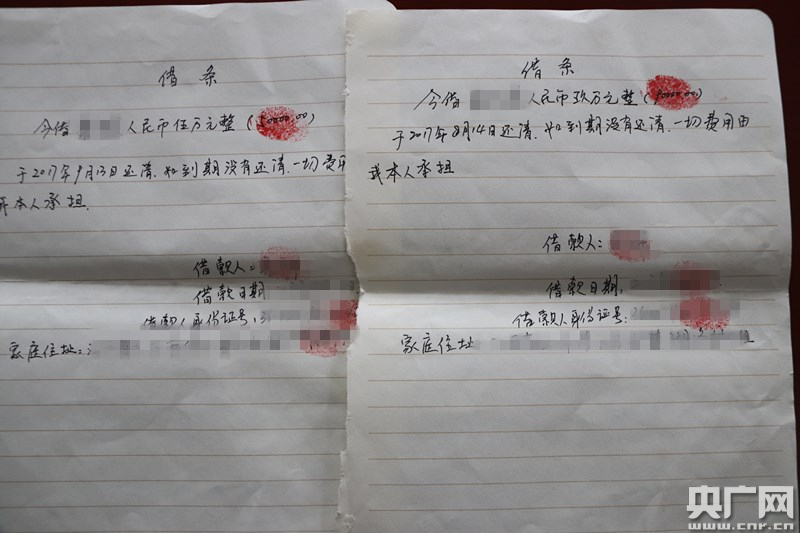 借条
今借 人民币伍万元整(50000.00)
于2017年9月13日还清.如到期没有还清.一切费用
本人承担.
借款人:
借款日期
借款人身份证号:3
家庭住址:
借条
今借 人民币玖万元整(90000.00)
于2017年8月14日还清.如到期没有还清.一切费用由
我本人承担
借款人:
借款日期.
借款人身份证号:
家庭住址
央广网
www.cnr.cn